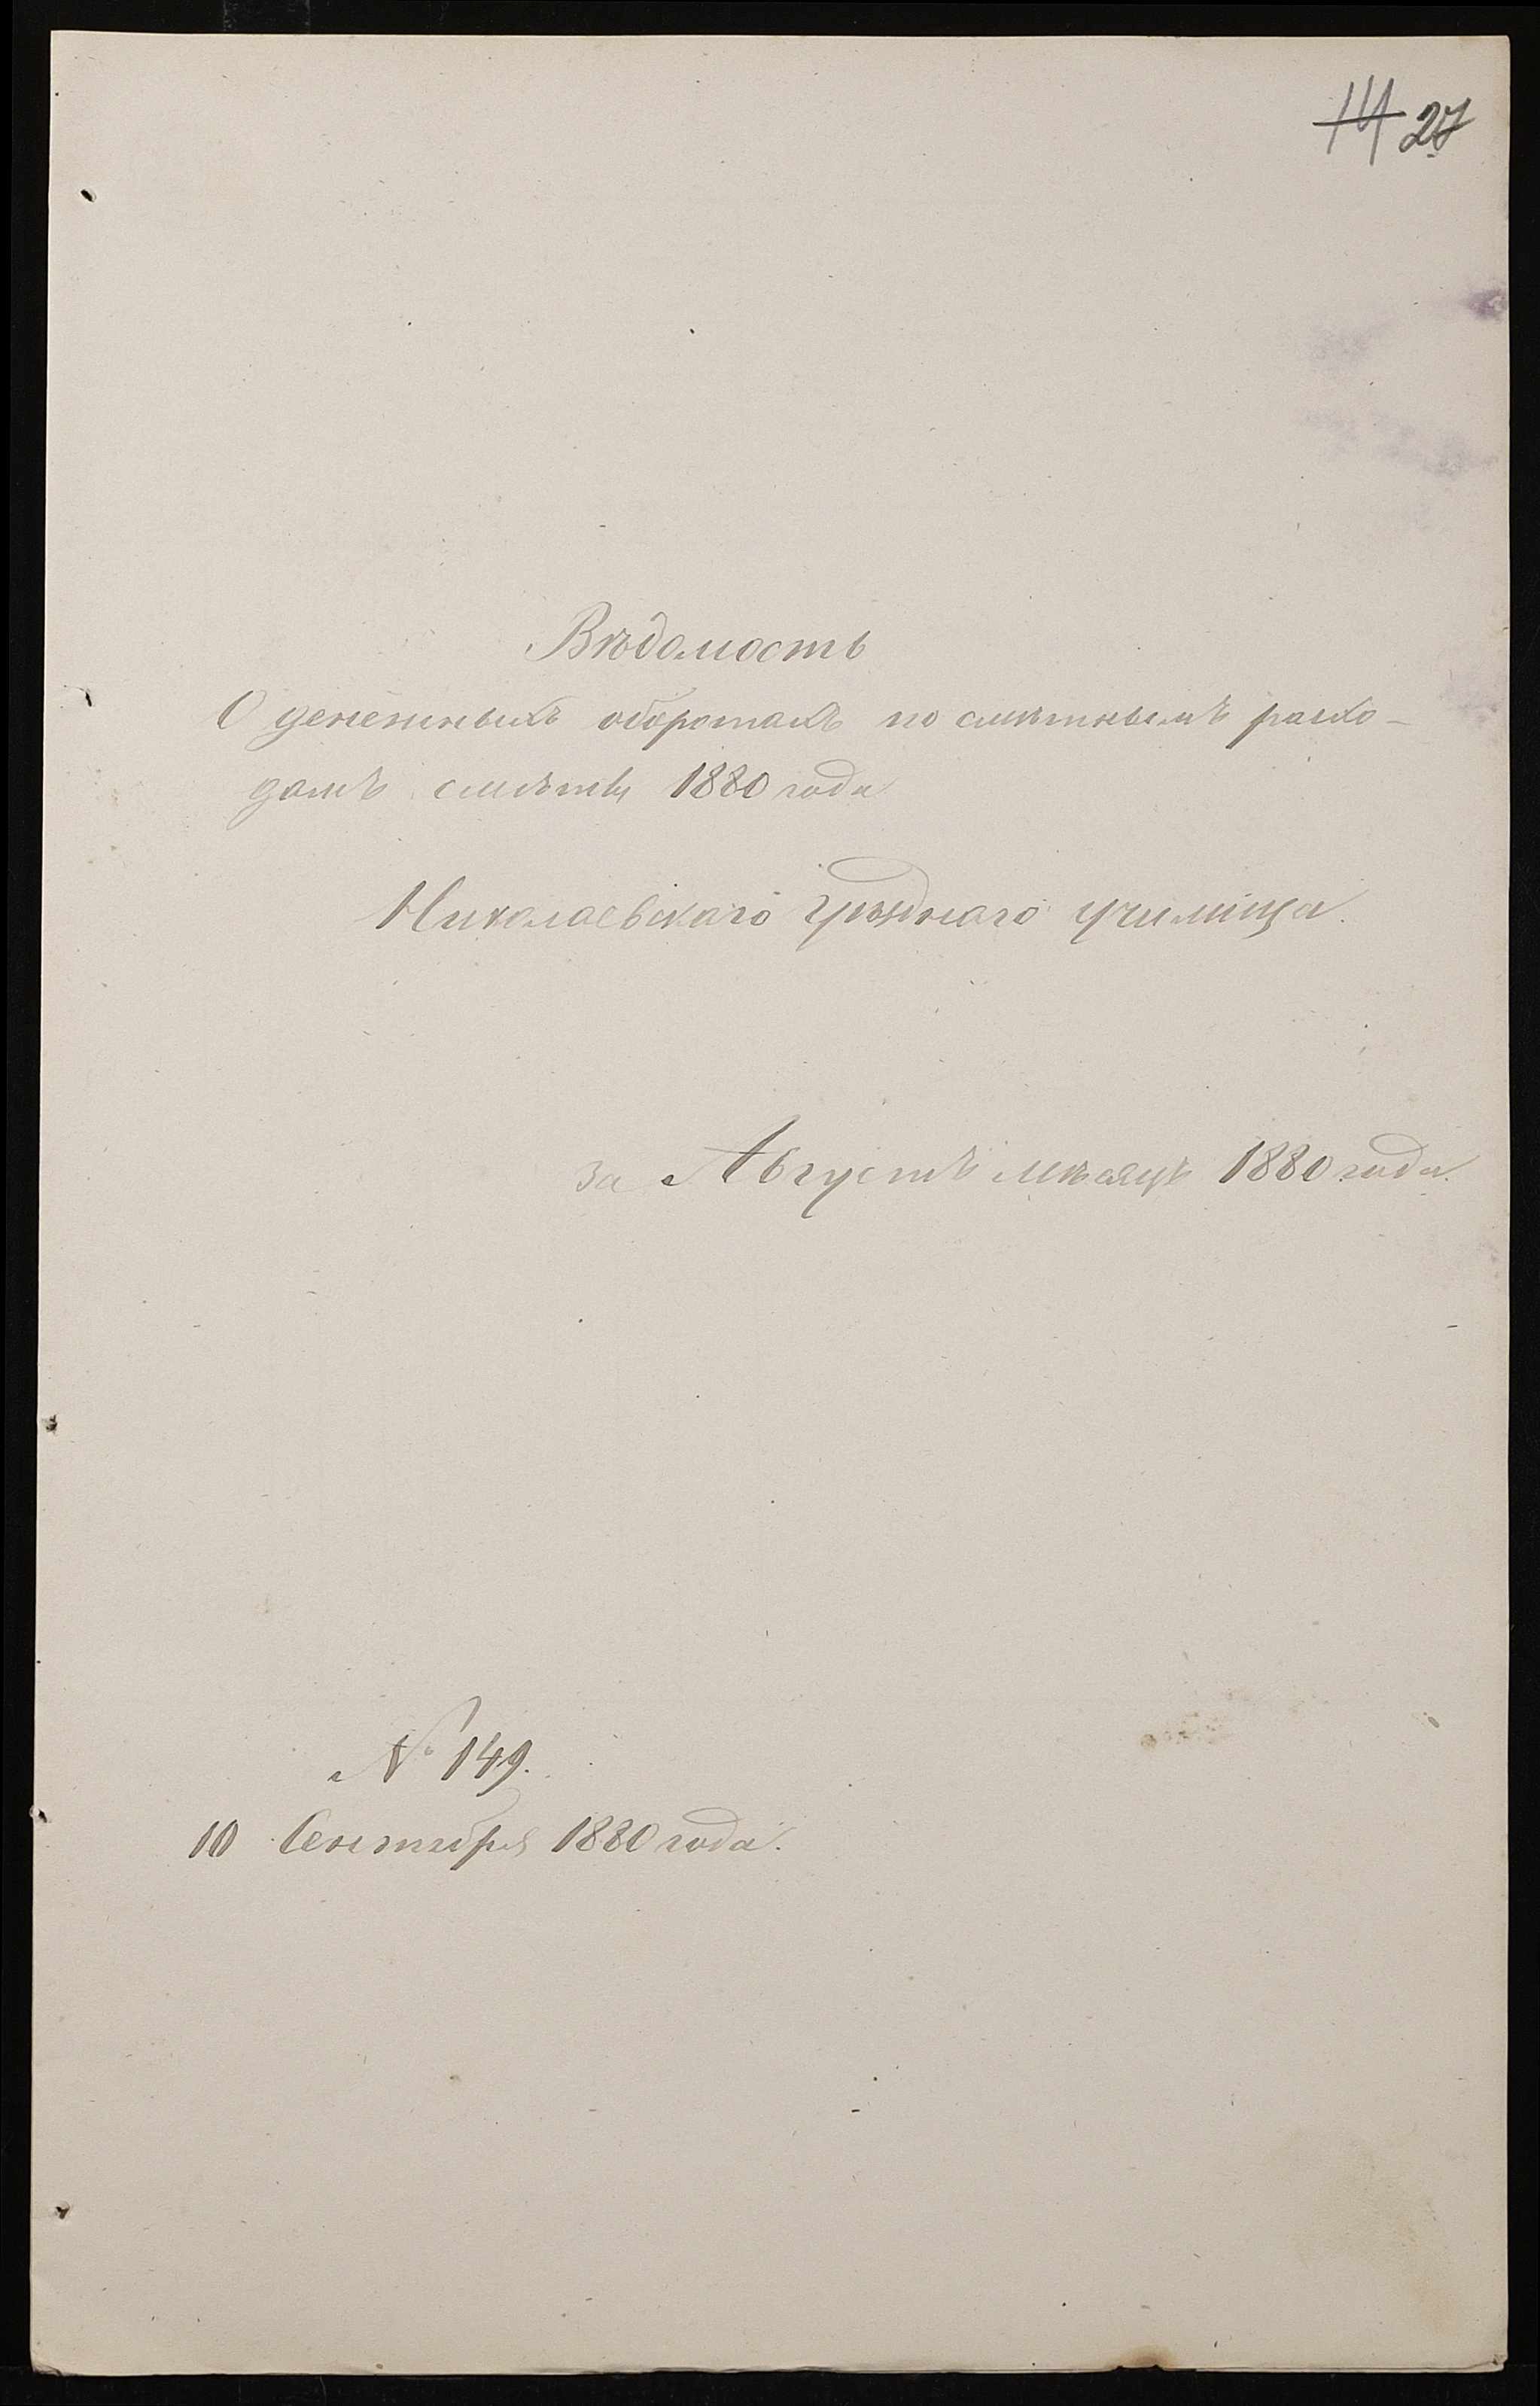 14 27
Вѣдомость
О денежныхъ оборотахъ по смѣтнымъ расхо-
дамъ смѣты 1880 года
Николаевскаго Уѣзднаго училища.
за Августъ мѣсяцъ 1880 года.
№ 149.
10 Сентября 1880 года.